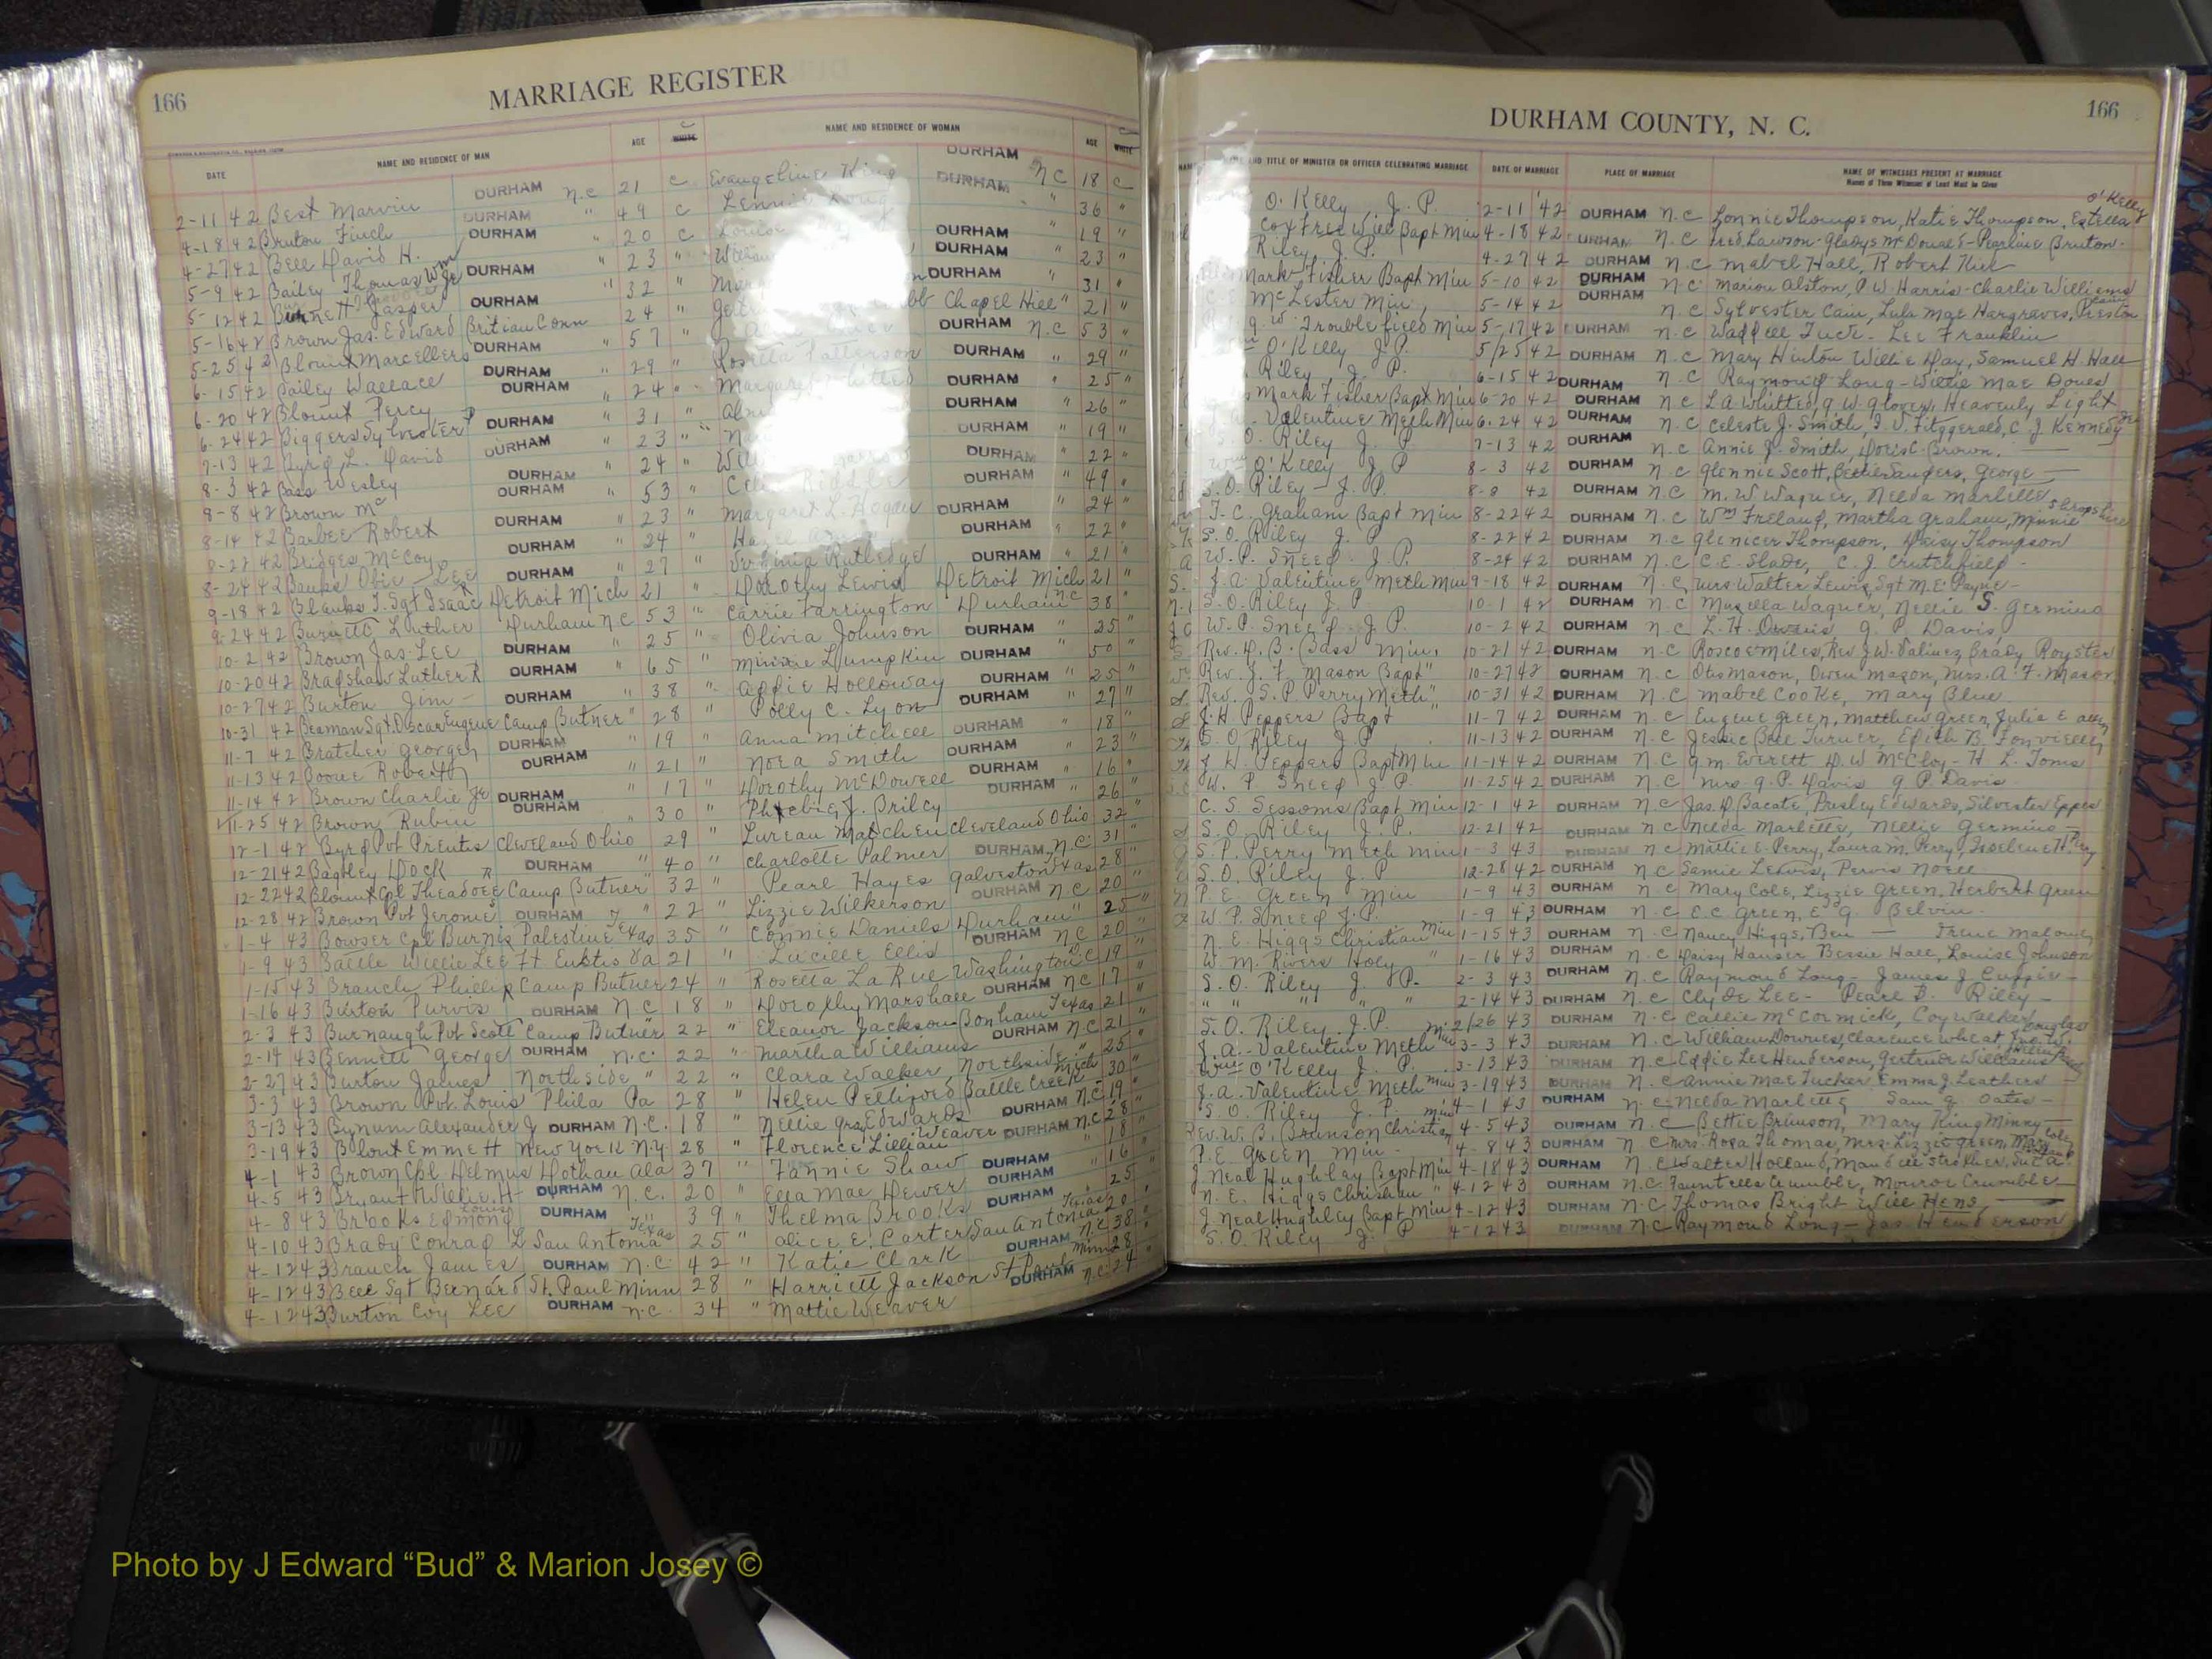 166
MARRIAGE REGISTER
DATE NAME AND RESIDENCE OF MAN AGE WHITE C NAME AND RESIDENCE OF WOMAN AGE WHITE C
DURHAM
2-11 42 Best Marvin DURHAM N.C 21 C Evangeline King DURHAM N C 18 C
4-18 42 Bruton Finch DURHAM " 49 C Lennie " 36 "
4-27 42 Bell David H. DURHAM " 20 C DURHAM " 19 "
5-9 42 Bailey Thomas Wm DURHAM " 23 " DURHAM " 23 "
5-12 42 Burnett Jasper Jr DURHAM " 32 " DURHAM " 31 "
5-16 42 Brown Jas. Edward Britian Conn 24 " Chapel Hill " 21 "
5-25 42 Blount Marcellers DURHAM " 57 " DURHAM N.C 53 "
6-15 42 Bailey Wallace DURHAM " 29 " Rosetta Patterson DURHAM " 29 "
6-20 42 Blount Percy DURHAM " 24 " Margaret Whitted DURHAM " 25 "
6-24 42 Biggers Sylvester P DURHAM " 31 " DURHAM " 26 "
7-13 42 Byrd L. David DURHAM " 23 " DURHAM " 19 "
8-3 42 Bass Wesley DURHAM 24 " DURHAM " 22 "
8-8 42 Brown Mc DURHAM " 53 " Riddle DURHAM " 49 "
8-14 42 Barbee Robert DURHAM " 23 " Margaret L. Hogan DURHAM " 24 "
8-22 42 Bridges McCoy DURHAM " 24 " Hazel DURHAM " 22 "
8-24 42 Banks Obie Lee DURHAM " 27 " Rutledge DURHAM " 21 "
9-18 42 Blanks T. Sgt Isaac Detroit Mich 21 " Dorothy Lewis Detroit Mich 21 "
9-24 42 Burnett Luther Durham N C 53 " Carrie Farrington Durham N.C 38 "
10-2 42 Brown Jas. Lee DURHAM " 25 " Olivia Johnson DURHAM " 25 "
10-20 42 Bradshaw Luther R DURHAM " 65 " Minnie Lumpkin DURHAM " 50 "
10-27 42 Burton Jim DURHAM " 38 " Addie Holloway DURHAM " 25 "
10-31 42 Beaman Sgt. Oscar Eugene Camp Butner " 28 " Polly C. Lyon DURHAM " 27 "
11-7 42 Bratcher George DURHAM " 19 " Anna Mitchell DURHAM " 18 "
11-13 42 Boone Robert DURHAM " 21 " Nora Smith DURHAM " 23 "
11-14 42 Brown Charlie Jr DURHAM " 17 " Dorothy McDowell DURHAM " 16 "
11-25 42 Brown Rubin DURHAM " 30 " Phoebie J. Briley DURHAM " 26 "
12-1 42 Byrd Pvt Prentis Cleveland Ohio 29 " Lureau Cleveland Ohio 32 "
12-21 42 Bagbley Dock DURHAM " 40 " Charlotte Palmer DURHAM N.C. 31 "
12-22 42 Blount Cpl Theadore Camp Butner " 32 " Pearl Hayes Galveston Texas 28 "
12-28 42 Brown Pvt Jerome DURHAM " 22 " Lizzie Wilkerson DURHAM N C 20 "
1-4 43 Bowser Cpl Burnis Palestine Texas 35 " Connie Daniels Durham " 25 "
1-9 43 Battle Willie Lee Ft Eustis Va 21 " Lucille Ellis DURHAM N C 20 "
1-15 43 Branch Phillip Camp Butner 24 " Rosetta La Rue Washington D.C 19 "
1-16 43 Burton Purvis DURHAM N C 18 " Dorothy Marshall DURHAM N C 17 "
2-3 43 Burnaugh Pvt Scott Camp Butner 22 " Eleanor Jackson Bonham Texas 21 "
2-14 43 Bennett George DURHAM N.C. 22 " Martha Williams DURHAM N C 21 "
2-27 43 Burton James Northside " 22 " Clara Walker Northside " 25 "
3-3 43 Brown Pvt. Louis Phila Pa 28 " Helen Pettiford Battle Creek Mich 30 "
3-13 43 Bynum Alexander J DURHAM N.C. 18 " Nellie Gray Edwards DURHAM N.C 19 "
3-19 43 Blount Emmett New York N.Y. 28 " Florence Lillian Weaver DURHAM N.C 28 "
4-1 43 Brown Cpl Helmus Dothan Ala 37 " Fannie Shaw DURHAM " 18 "
4-5 43 Bryant Willie H DURHAM N.C. 20 " Ella Mae Dewer DURHAM " 16 "
4-8 43 Brooks Edmond Louis DURHAM " 39 " Thelma Brooks DURHAM " 25 "
4-10 43 Brady Conrad L San Antonia Texas 25 " Alice E. Carter San Antonia Texas 20 "
4-12 43 Branch James DURHAM N.C. 42 " Katie Clark DURHAM N.C 38 "
4-12 43 Bell Sgt Bernard St. Paul Minn 28 " Harriett Jackson St Paul Minn 28 "
4-12 43 Burton Coy Lee DURHAM N.C. 34 " Mattie Weaver DURHAM N.C. 24 "
DURHAM COUNTY, N. C.
166
NAME AND TITLE OF MINISTER OR OFFICER CELEBRATING MARRIAGE DATE OF MARRIAGE PLACE OF MARRIAGE NAME OF WITNESSES PRESENT AT MARRIAGE
Names of Three Witnesses at Least Must be Given
O. Kelly J. P. 2-11 '42 DURHAM N.C Lonnie Thompson, Katie Thompson, Estella O'Kelly
Cox Free Will Bapt Min 4-18 42 DURHAM N.C Fred Lawson - Gladys McDonald - Pearline Bruton
Riley J. P. 4-27 42 DURHAM N.C Mabel Hall, Robert
Mark Fisher Bapt Min 5-10 42 DURHAM N.C. Marion Alston, P W Harris - Charlie Williams
McLester Min, 5-14 42 DURHAM N.C Sylvester Cain, Lula Mae Hargraves, Preston
G. W. Troublefield Min 5-17 42 DURHAM N.C Waddell Tuck - Lee Franklin
O'Kelly J. P. 5/25 42 DURHAM N.C Mary Hinton Willie Day, Samuel H. Hall
Riley J. P. 6-15 42 DURHAM N.C Raymond Long - Willie Mae
Mark Fisher Bapt Min 6-20 42 DURHAM N.C L A Whitted, G. W. Glover, Heavenly Light
Valentine Meth Min 6-24 42 DURHAM N.C Celeste J. Smith, Fitzgerald, C J. Kennedy
S. O. Riley J. P 7-13 42 DURHAM N.C Annie J. Smith, Doris C. Brown.
O'Kelly J P 8-3 42 DURHAM N.C Glennie Scott, Sanders, George
S. O. Riley J. P. 8-8 42 DURHAM N.C M. W Wagner, Nelda Marlette
T. C. Graham Bapt Min 8-22 42 DURHAM N.C Wm Freland, Martha Graham, Minnie Shropshire
S. O. Riley J. P 8-22 42 DURHAM N.C Glenicer Thompson, Daisy Thompson
W. P. Sneed J. P. 8-24 42 DURHAM N.C C. E. Slade, C. J. Crutchfield
J. A. Valentine Meth Min 9-18 42 DURHAM N.C Mrs Walter Lewis, Sgt M. E. Payne
S. O. Riley J. P 10-1 42 DURHAM N.C Wagner, Nellie S. Germino
W. P. Sneed J. P. 10-2 42 DURHAM N.C L. H. Owens G. P Davis,
Rev. D. B. Bass Min. 10-21 42 DURHAM N.C Roscoe Miles, Rev J. W. Brady Royster
Rev. J. F Mason Bapt " 10-27 42 DURHAM N.C Otis Mason, Owen Mason, Mrs. A. F. Mason
Rev. S. P Perry Meth " 10-31 42 DURHAM N.C Mabel Cooke, Mary Blue
J. H Peppers Bapt 11-7 42 DURHAM N.C Eugene Green, Matthew Green, Julia E Allen
S. O Riley J. P 11-13 42 DURHAM N.C Jessie Bell Turner, Edith B. Fonvielle
J. H. Peppers Bapt Min 11-14 42 DURHAM N.C G. M. Everett D. W McCloy - H. L. Toms
W. P Sneed J. P. 11-25 42 DURHAM N.C Mrs. G. P. Davis G P Davis
C. S Sessoms Bapt Min 12-1 42 DURHAM N.C Jas. D. Bacate, Presley Edwards, Silvester Eppes
S. O Riley J. P. 12-21 42 DURHAM N.C Nelda Marlette, Nellie Germino
S. P. Perry Meth Min 1-3 43 DURHAM N.C Mattie E. Perry, Laura M. Perry,
S. O. Riley J. P 12-28 42 DURHAM N.C Samie Lewis, Pervis Noell
P. E Green Min 1-9 43 DURHAM N.C Mary Cole, Lizzie Green, Herbert Green
W. P. Sneed J. P. 1-9 43 DURHAM N.C E. C. Green, E. G. Belvin
N. E. Higgs Christian Min 1-15 43 DURHAM N.C Nancy Higgs, Ben — Irene Malone
W. M. Rivers Holy " 1-16 43 DURHAM N.C Daisy Hauser Bessie Hall, Louise Johnson
S. O. Riley J. P. 2-3 43 DURHAM N.C Raymond Long - James J
" " " " 2-14 43 DURHAM N.C Clyde Lee - Pearl B. Riley
S. O. Riley J. P. 2/26 43 DURHAM N.C Callie McCormick, Coy Walker
J. A. Valentine Meth Min 3-3 43 DURHAM N.C William Downes, Clarence Wheat, Douglas
Wm O'Kelly J. P. 3-13 43 DURHAM N.C Eddie Lee Henderson, Gertrude Williams
J. A. Valentine Meth Min 3-19 43 DURHAM N.C Annie Mae Tucker Emma J. Leathers
S. O. Riley J. P. 4-1 43 DURHAM N.C Nelda Marlette Sam G. Oates
Rev. W. B. Brunson Christian Min 4-5 43 DURHAM N.C Bettie Brunson, Mary King Mimmy
P. E Green Min 4-8 43 DURHAM N C Mrs. Rosa Thomas, Mrs. Lizzie Green, Mary Cole
J. Neal Hughley Bapt Min 4-18 43 DURHAM N.C Walter Holland, Maudell Strother,
N. E. Higgs Christian " 4-12 43 DURHAM N.C. Crumble, Monroe Crumble
J. Neal Hughley Bapt Min 4-12 43 DURHAM N.C Thomas Bright Will Hens
S. O. Riley J. P 4-12 43 DURHAM N.C Raymond Long - Jas. Henderson
Photo by J Edward “Bud” & Marion Josey ©